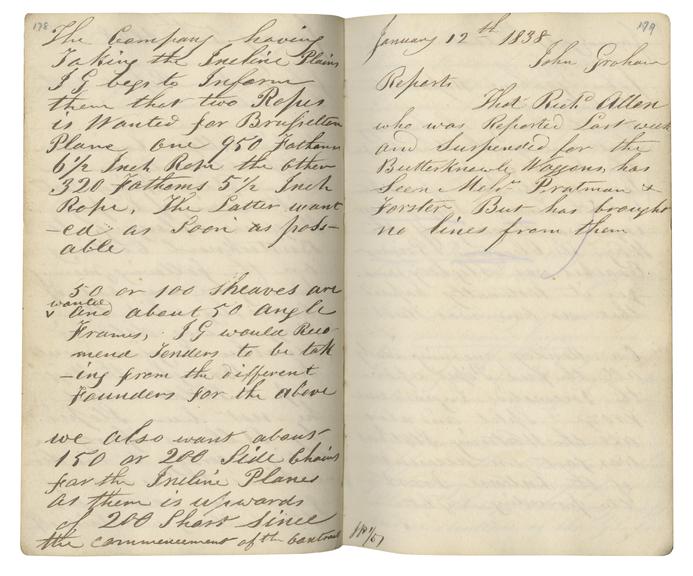 178
The Company having
Taking the Incline Plains
J G begs to Inform
them that two Ropes
is Wanted for Brusselton
Plane One 950 Fathoms
6½ Inch Rope the other
320 Fathoms 5½ Inch
Rope, The Latter want
-ed as Soon as poss-
able
50 or 100 sheaves are
wanted
v and about 50 angle
Frames, J G would Reco
mend Tenders to be tak
-ing from the different
Founders for the above
we also want about
150 or 200 Side Chains
for the Incline Planes
as them is upwards
of 200 Short since
the commencement of the Contract
179
January 12th 1838
John Graham
Reports
That Richd Allen
who was Reported Last week
and Suspended for the
Butterknowle Waggons, has
Seen Messrs Pratman &
Forster, But has brought
no lines from them